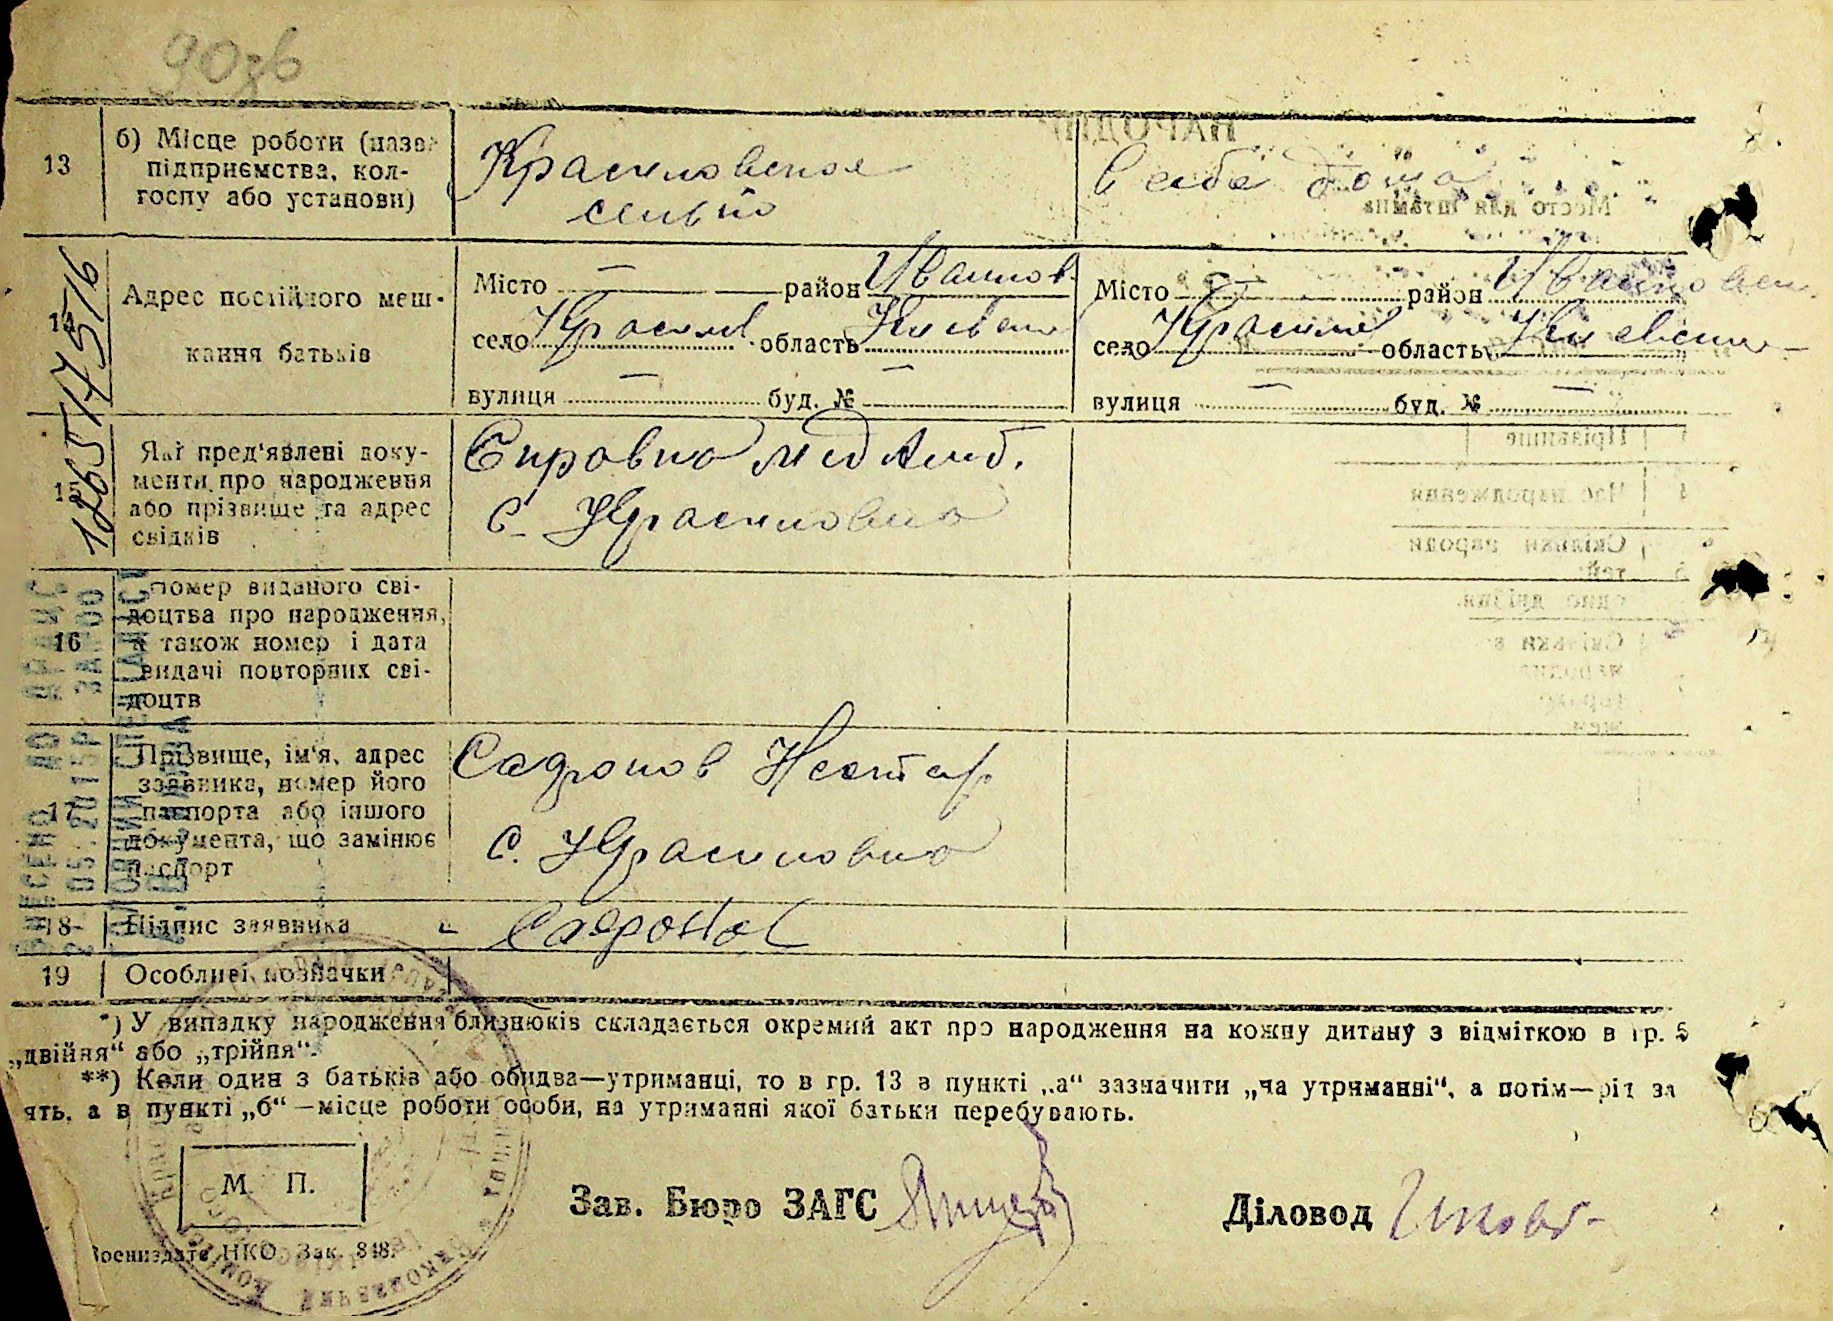 90зв
13
б) Місце роботи (назва
підприємства, кол-
госпу або установи)
Красиловское
сельпо
в себе дома
Место для штампа
1265174516
14
Адрес постійного меш-
кання батьків
Місто — район Иванков.
село Красилов. область Киевск
вулиця — буд. № —
Місто — район Иванковск.
село Красилов. область Киевская
вулиця — буд. № —
15
Які пред'явлені доку-
менти про народження
або прізвище та адрес
свідків
Справка мед Амб.
с. Красиловка
16
Номер виданого сві-
доцтва про народження,
а також номер і дата
видачі повторних сві-
доцтв
17
Прізвище, ім'я, адрес
заявника, номер його
паспорта або іншого
документа, що замінює
паспорт
Сафронов Нестер
с. Красиловка
18
Підпис заявника
Сафронов
19
Особливі позначки
*) У випадку народження близнюків складається окремий акт про народження на кожну дитину з відміткою в гр. 5
„двійня“ або „трійня“.
**) Коли один з батьків або обидва—утриманці, то в гр. 13 в пункті „а“ зазначити „на утриманні“, а потім—рід за
ять, а в пункті „б“ —місце роботи особи, на утриманні якої батьки перебувають.
М. П.
Зав. Бюро ЗАГС
Діловод
Воениздат НКО. Зак. 848.